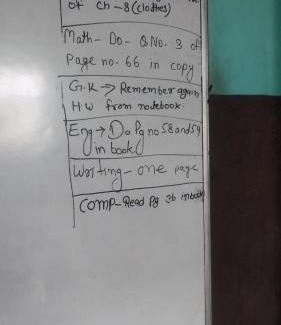 of Ch-8(clothes)
Math- Do- Q No. 3 of
Page no. 66 in copy.
G.K → Remember again
H W from notebook.
Eng → Do Pg no 58 and 59
in book.
Writing - one page
Comp- Read Pg 36 in book